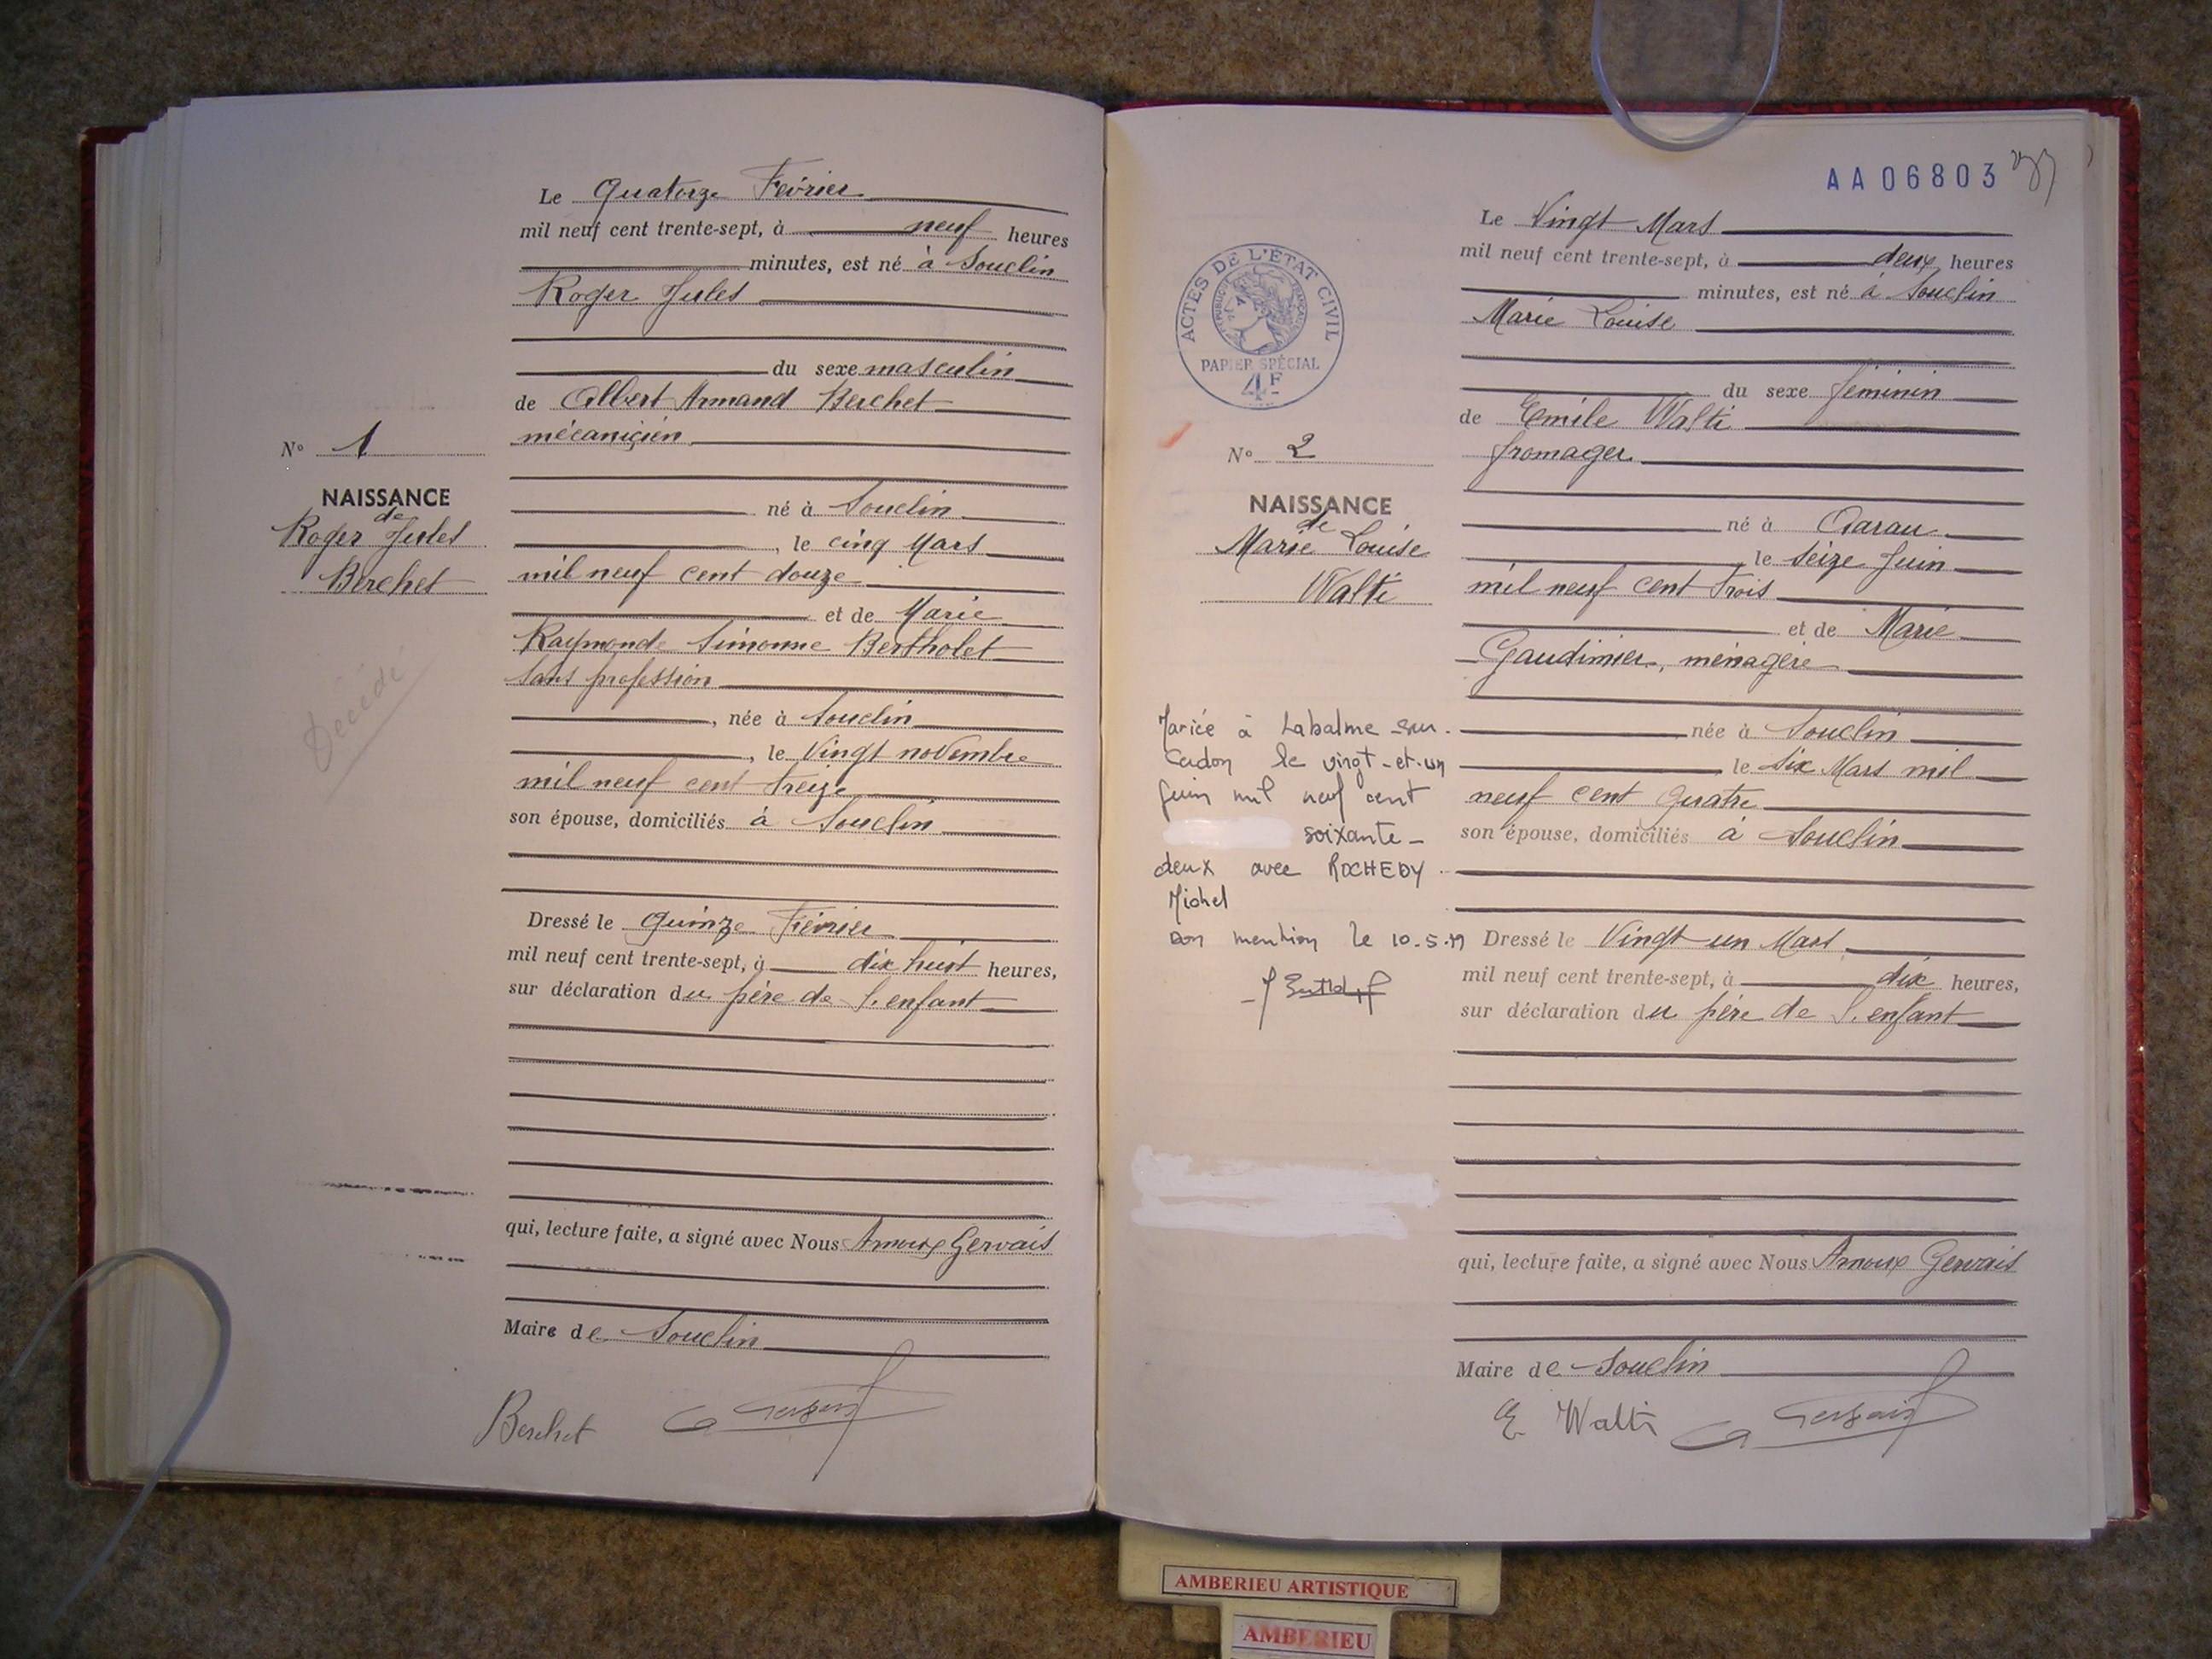 Le Quatorze Février
mil neuf cent trente-sept, à neuf heures
minutes, est né à Souclin
Roger Jules
du sexe masculin
de Albert Armand Berchet
mécanicien
N° 1
NAISSANCE
de
Roger Jules
Berchet
né à Souclin
, le cinq Mars
mil neuf cent douze
et de Marie
Raymonde Simonne Bertholet
sans profession
Décédé
, née à Souclin
, le Vingt novembre
mil neuf cent treize
son épouse, domiciliés à Souclin
Dressé le Quinze Février
mil neuf cent trente-sept, à dix huit heures,
sur déclaration du père de l'enfant
qui, lecture faite, a signé avec Nous Arnoux Gervais
Maire de Souclin
Berchet Gervais
AA06803
ACTES DE L'ÉTAT CIVIL
PAPIER SPÉCIAL
4F
Le Vingt Mars
mil neuf cent trente-sept, à deux heures
minutes, est né à Souclin
Marie Louise
du sexe féminin
de Emile Walti
fromager
N° 2
NAISSANCE
de
Marie Louise
Walti
né à Aarau
le seize Juin
mil neuf cent trois
et de Marie
Gaudimier, ménagère
née à Souclin
le six Mars mil
neuf cent quatre
son épouse, domiciliés à Souclin
Mariée à Labalme-sur-
Cerdon le vingt-et-un
juin mil neuf cent
soixante-
deux avec ROCHEDY
Michel
mention le 10.5.
Dressé le Vingt un Mars
mil neuf cent trente-sept, à dix heures,
sur déclaration du père de l'enfant
qui, lecture faite, a signé avec Nous Arnoux Gervais
Maire de Souclin
E. Walti Gervais
AMBERIEU ARTISTIQUE
AMBERIEU